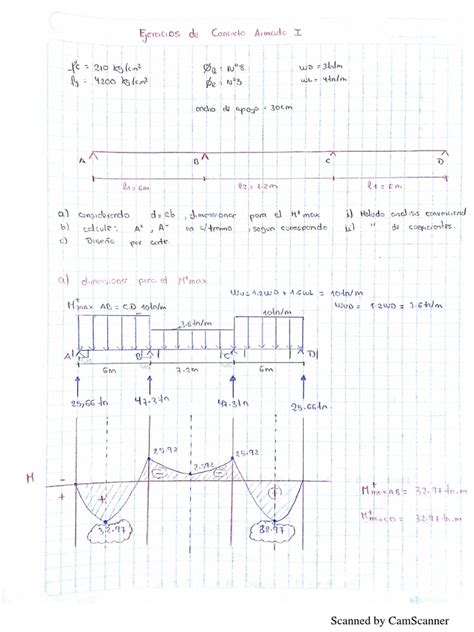 Ejercicios de Concreto Armado I
f'c = 210 kg/cm² Øb : N°8 WD = 3tn/m
fy = 4200 kg/cm² Øe : N°3 WL = 4tn/m
ancho de apoyo = 30cm
A B C D
l1 = 6m l2 = 7.2m l1 = 6m
a) considerando d=2b, dimensionar para el M⁺max i) Metodo analisis convencional
b) calcule: A⁺, A⁻ en c/tramo, segun corresponde ii) " de coeficientes.
c) Diseño por corte.
a) dimensionar para el M⁺max
Wu = 1.2WD + 1.6WL = 10tn/m
M⁺max AB = CD 10tn/m
10tn/m
WUD = 1.2WD = 3.6tn/m
3.6tn/m
A B C D
6m 7.2m 6m
25,66tn 47.3tn 47.3tn 25.66tn
25.92 25.92
2.592
M
+
32.97 32.97
M⁺max AB = 32.97tn.m
M⁺max CD = 32.97tn.m
Scanned by CamScanner